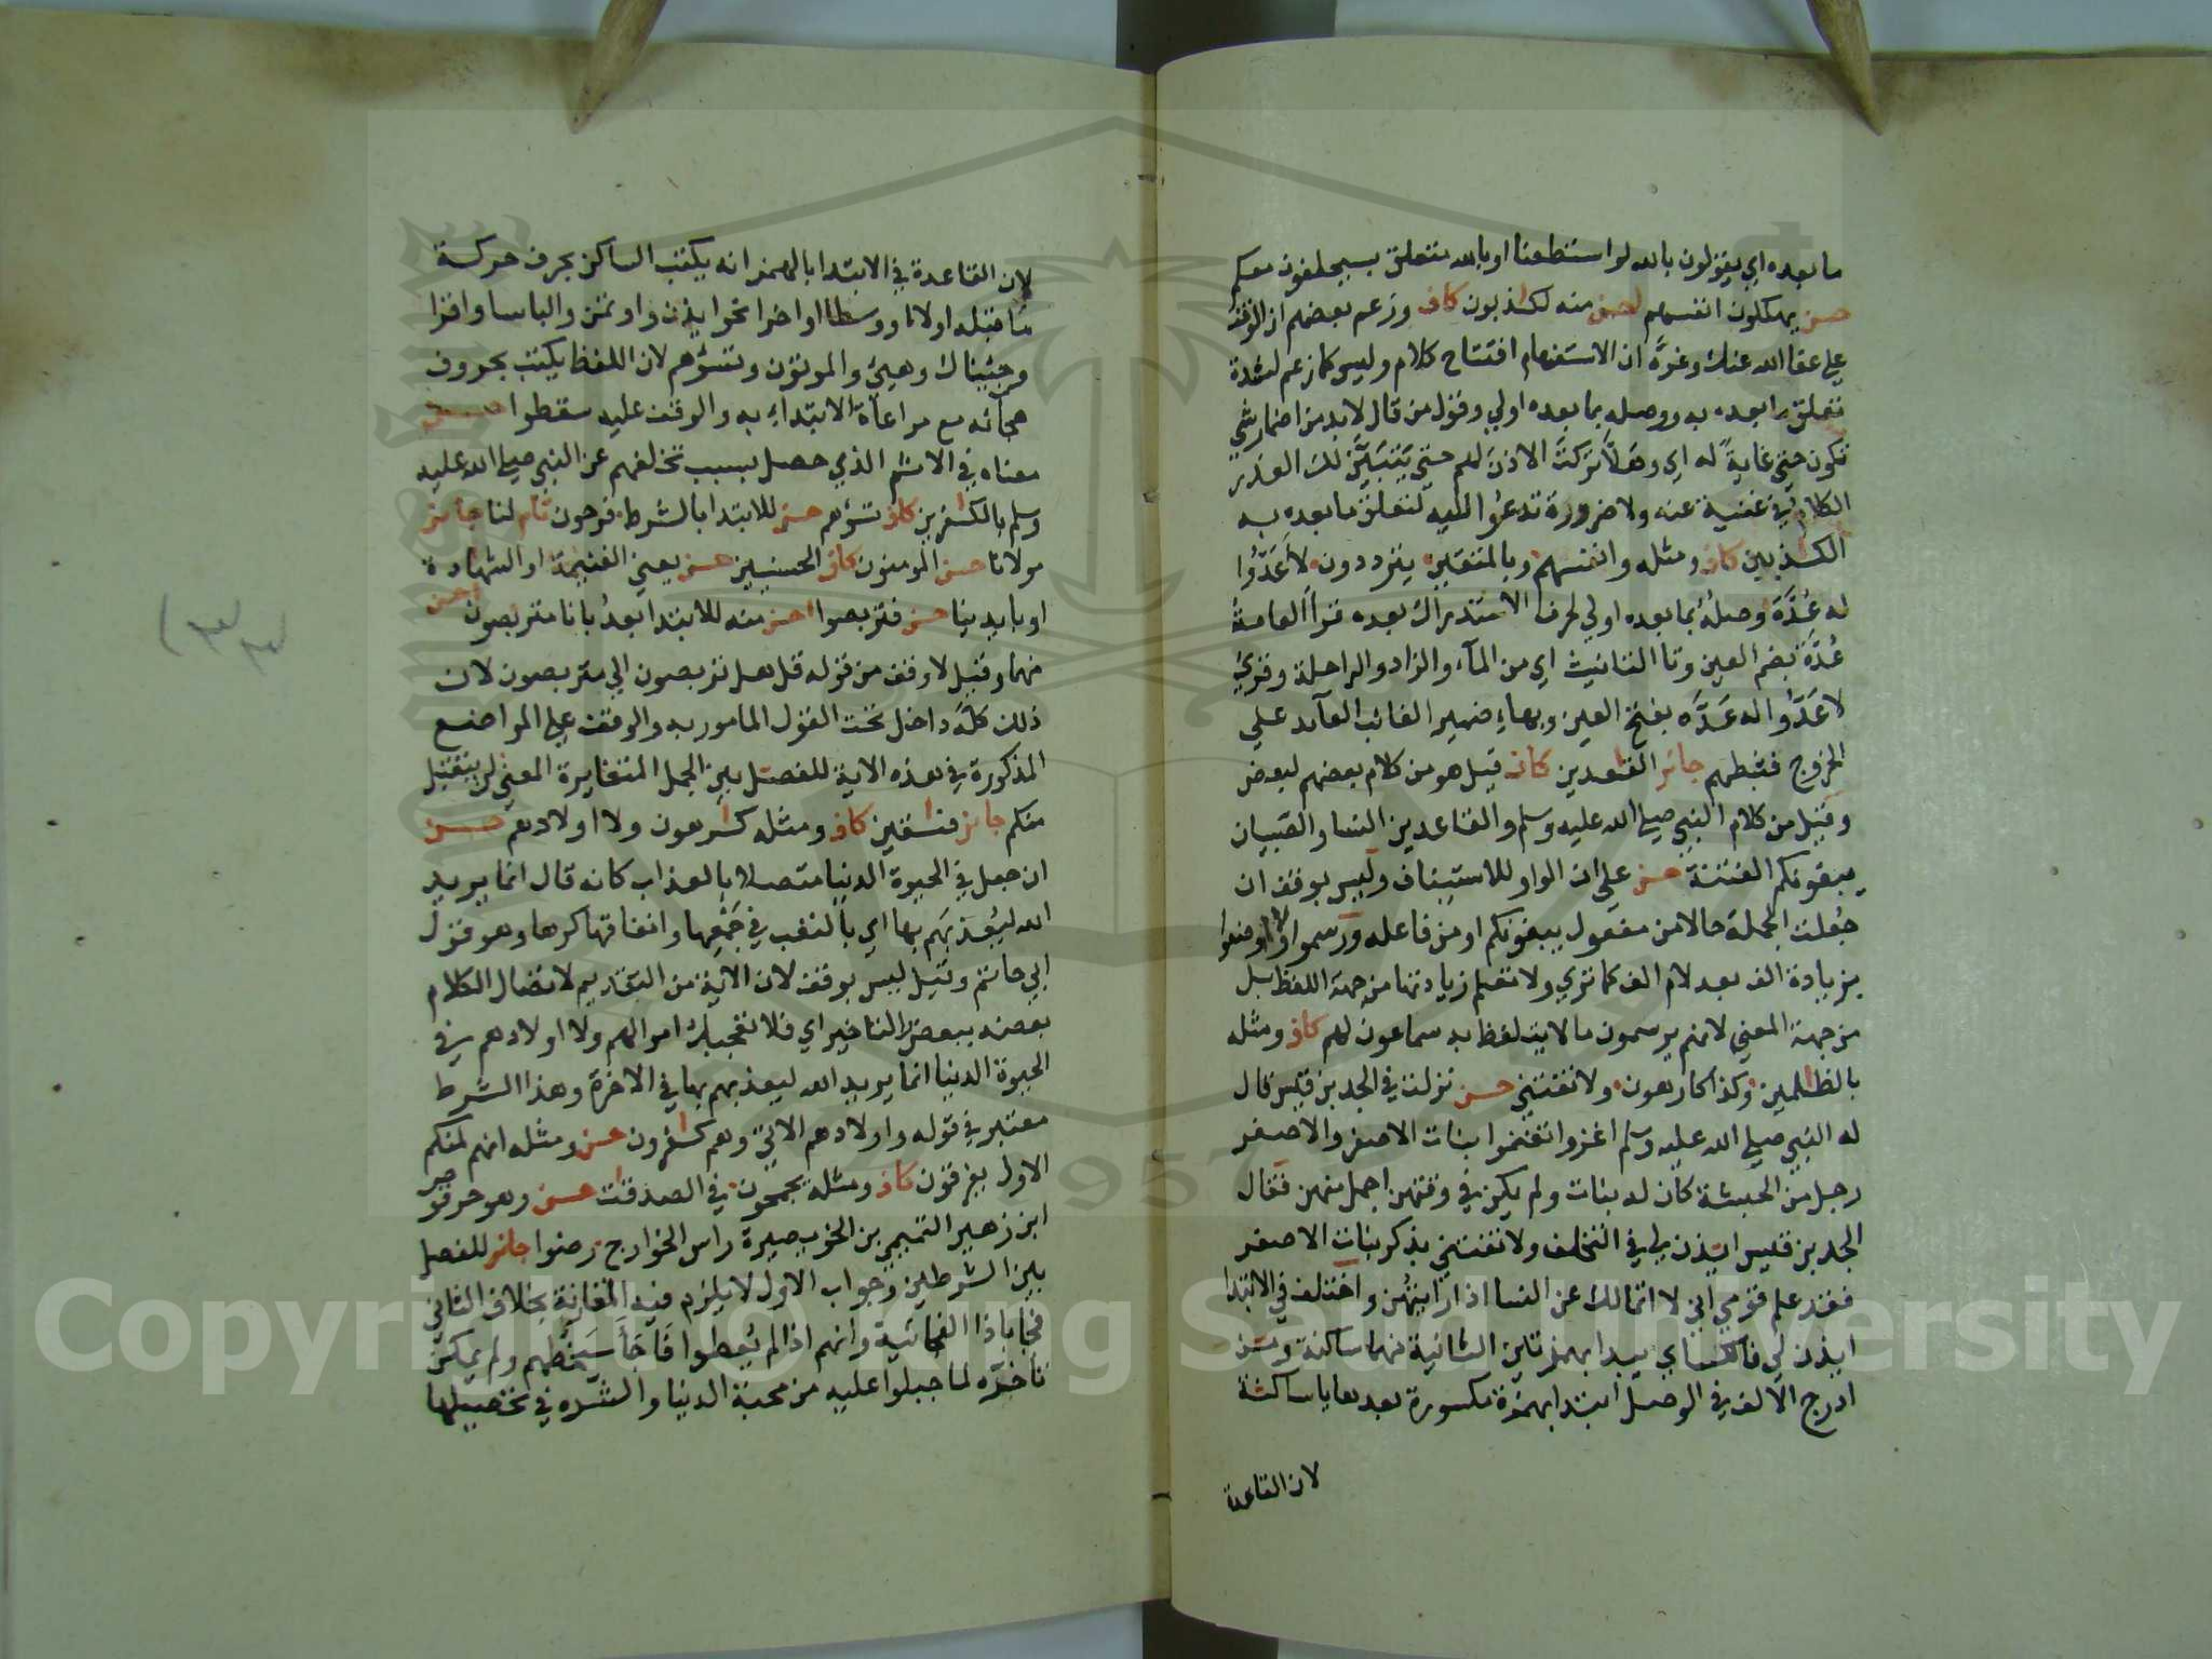 ما بعده اي يقولون بالله لو استطعنا او بالله متعلق بسيحلفون معكم
حسن يهلكون انفسهم احسن منه لكذبون كاف وزعم بعضهم ان الوقف
على عفا الله عنك وغرَّه ان الاستفهام افتتاح كلام وليس كما زعم لشدة
تعلق ما بعده به ووصله بما بعده اولي وقول من قال لا بد من اضمار شي
تكون حتي غايةً له اي وهَلَّا تركتَ الاذن لهم حتي يتبيَّن لك العذر
الكلام في غنية عنه ولا ضرورة تدعوا اليه لتعلق ما بعده به
الكذبين كاف ومثله وانفسهم وبالمتقين يترددون لأعَدُّوا
له عُدَّةً وصله بما بعده اولي لحرف الاستدراك بعده قرأ العامة
عُدَّةً بضم العين وتا التانيث اي من الماء والزاد والراحلة وقري
لاعَدُّوا له عَدَّه بفتح العين وبهاء ضمير الغائب العائد علي
الخروج فثبطهم جائز القعدين كاف قيل هو من كلام بعضهم لبعض
وقيل من كلام النبي صلي الله عليه وسلم والقاعدين النسا والصبيان
يبغونكم الفتنة حسن على ان الواو للاستيناف وليس بوقف ان
جُعلت الجملة حالا من مفعول يبغونكم او من فاعله ورسموا ولا اوضعوا
بزيادة الف بعد لام الف كما تري ولا تعلم زيادتها من جهة اللفظ بل
من جهة المعني لانهم يرسمون ما لا يتلفظ به سماعون لهم كاف ومثله
بالظلمين وكذا كارهون ولا تفتني حسن نزلت في الجد بن قيس قال
له النبي صلي الله عليه وسلم اغزوا تغنموا بنات الاصفر والاصفر
رجل من الحبشة كان له بنات ولم يكن في وقتهن اجمل منهن فقال
الجد بن قيس ايذن لي في التخلف ولا تفتني بذكر بنات الاصفر
فقد علم قومي اني لا اتمالك عن النسا اذا رايتهن واختلف في الابتدا
ايذن لي فالكسائي يبدا بهمزتين الثانية منهما ساكنة ومن
ادرج الالف في الوصل ابتدا بهمزة مكسورة بعدها ياساكنة
لان القاعدة
لان القاعدة في الابتدا بالهمز انه يكتب الساكن بحرف حركة
ما قبله اولا او وسطا او اخرا نحو ايذن واوتمن والباسا واقرا
وجئيناك وهييء والموتون وتسؤهم لان اللفظ يكتب بحروف
هجائه مع مراعاة الابتداء به والوقف عليه سقطوا حسن
معناه في الاثم الذي حصل بسبب تخلفهم عن النبي صلي الله عليه
وسلم بالكفرين كاف تسؤهم حسن للابتدا بالشرط فرحون تام لنا جائز
مولانا حسن المومنون كاف الحسنيين حسن يعني الغنيمة او الشهادة
او بايدينا حسن فتربصوا احسن منه للابتدا بعدُ بانا متربصون احسن
منهما وقيل لا وقف من قوله قل هل تربصون الي متربصون لان
ذلك كلَّه داخل تحت القول المامور به والوقف علي المواضع
المذكورة في هذه الاية للفصل بين الجمل المتغايرة المعني لن يتقبل
منكم جائز فسقين كاف ومثله كرهون ولا اولادهم حسن
ان جعل في الحيوة الدنيا متصلا بالعذاب كانه قال انما يريد
الله ليُعذبَهم بها اي بالتعب في جَمْعِها وانفاقها كرها وهو قول
ابي حاتم وقيل ليس بوقف لان الاية من التقديم لاتصال الكلام
بعضه ببعض والتاخير اي فلا تعجبك اموالهم ولا اولادهم في
الحيوة الدنيا انما يريد الله ليعذبهم بها في الاخرة وهذا الشرط
معتبر في قوله واولادهم الاتي وهم كفرون حسن ومثله انهم لمنكم
الاول يفرقون كاف ومثله يجمحون في الصدقت حسن وهو حرقوص
ابن زهير التميمي بن الخويصرة راس الخوارج رضوا جائز للفصل
بين الشرطين وجواب الاول لا يلزم فيه المقارنة بخلاف الثاني
فجا باذا الفجائية وانهم اذا لم يُعطوا فَاجَأَ سَخَطُهم ولم يمكن
تاخره لما جبلوا عليه من محبة الدنيا والشره في تحصيلها
Copyright © King Saud University
1957